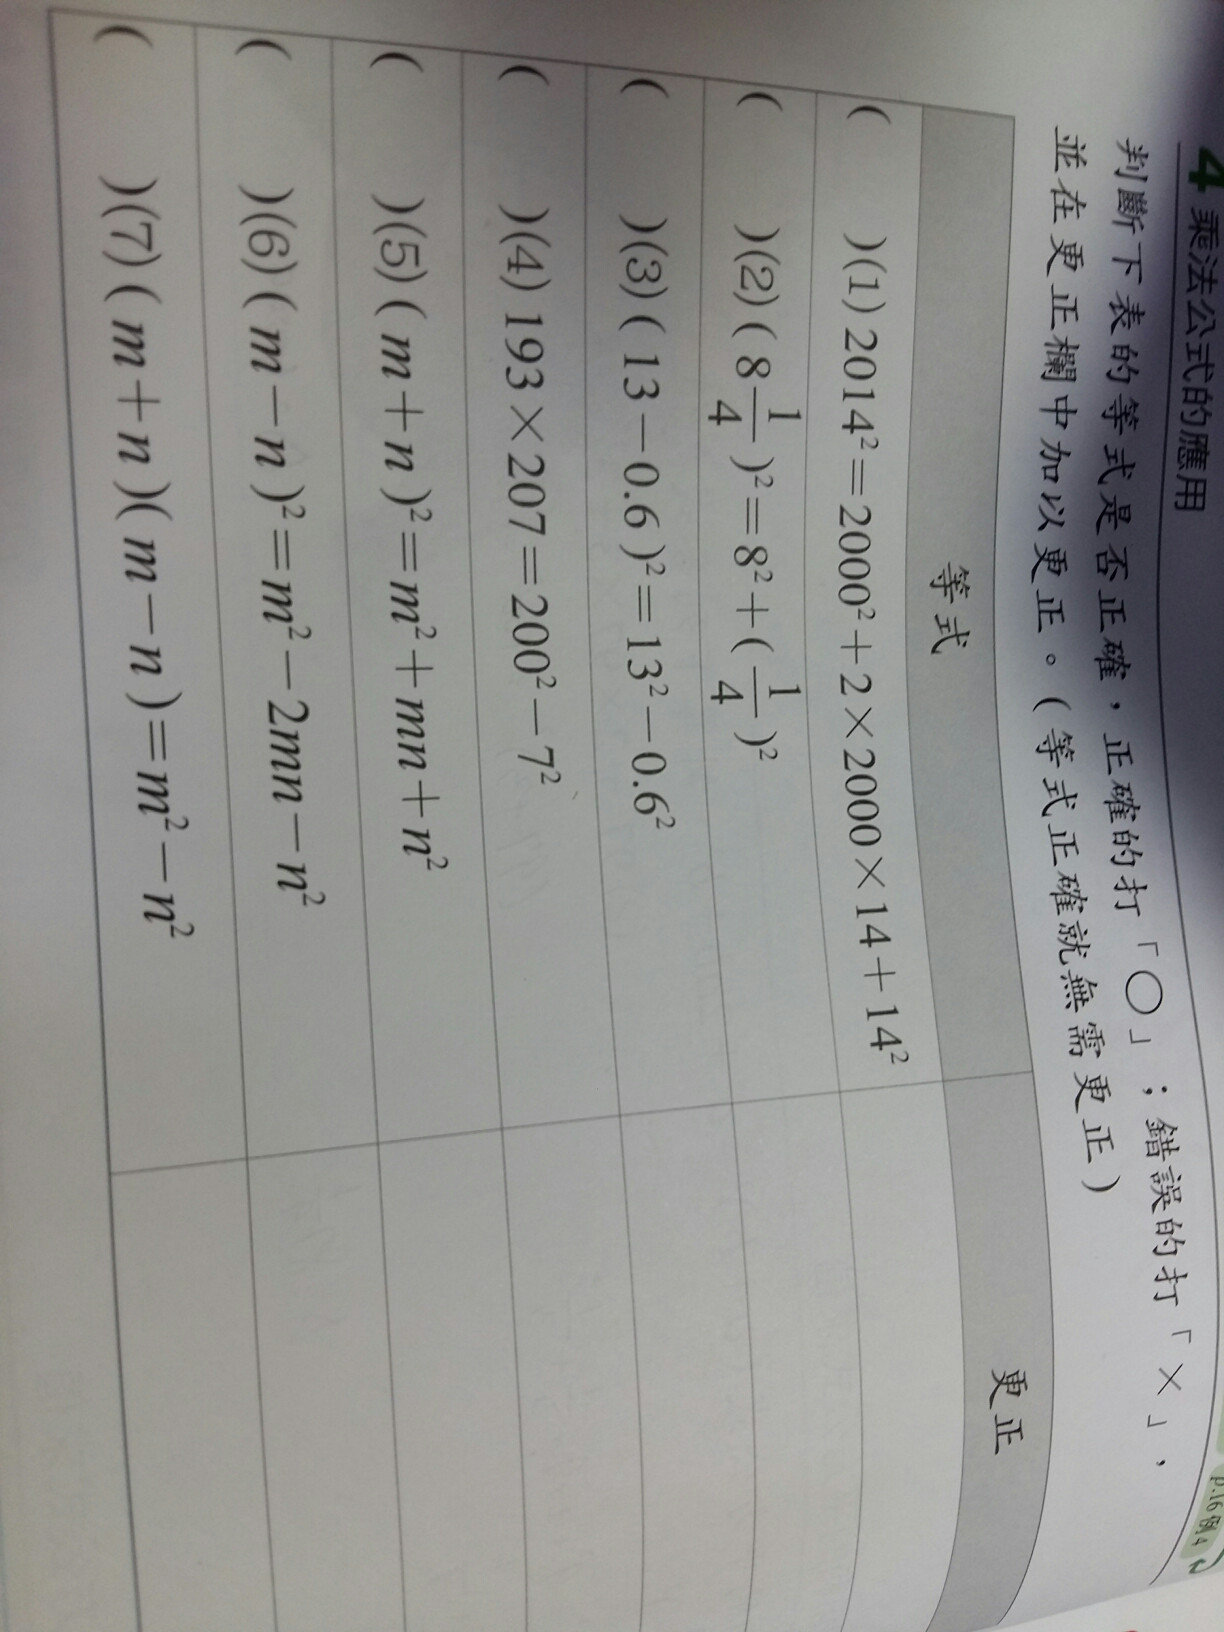 4 乘法公式的應用
p.16 例 4
判斷下表的等式是否正確，正確的打「○」；錯誤的打「×」，
並在更正欄中加以更正。(等式正確就無需更正)
等式 更正
( )(1) 2014²=2000²+2×2000×14+14²
( )(2) ( 8 1/4 )²=8²+( 1/4 )²
( )(3) ( 13-0.6 )²=13²-0.6²
( )(4) 193×207=200²-7²
( )(5) ( m+n )²=m²+mn+n²
( )(6) ( m-n )²=m²-2mn-n²
( )(7) ( m+n )( m-n )=m²-n²